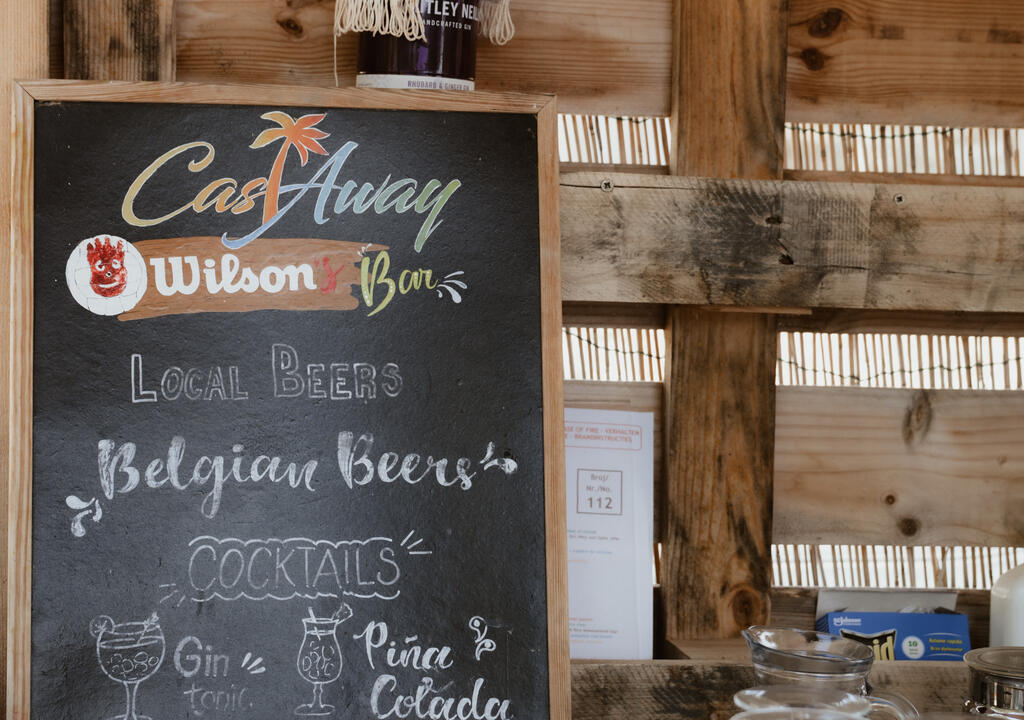 TLEY NEI
HANDCRAFTED GIN
RHUBARB & GINGER GIN
CastAway
Wilson's Bar
LOCAL BEERS
Belgian Beers
COCKTAILS
Gin
tonic
Piña
Colada
ASE OF FIRE - VERHALTEN
E - BRANDINSTRUCTIES
Broj/
Nr./No.
112
Johnson